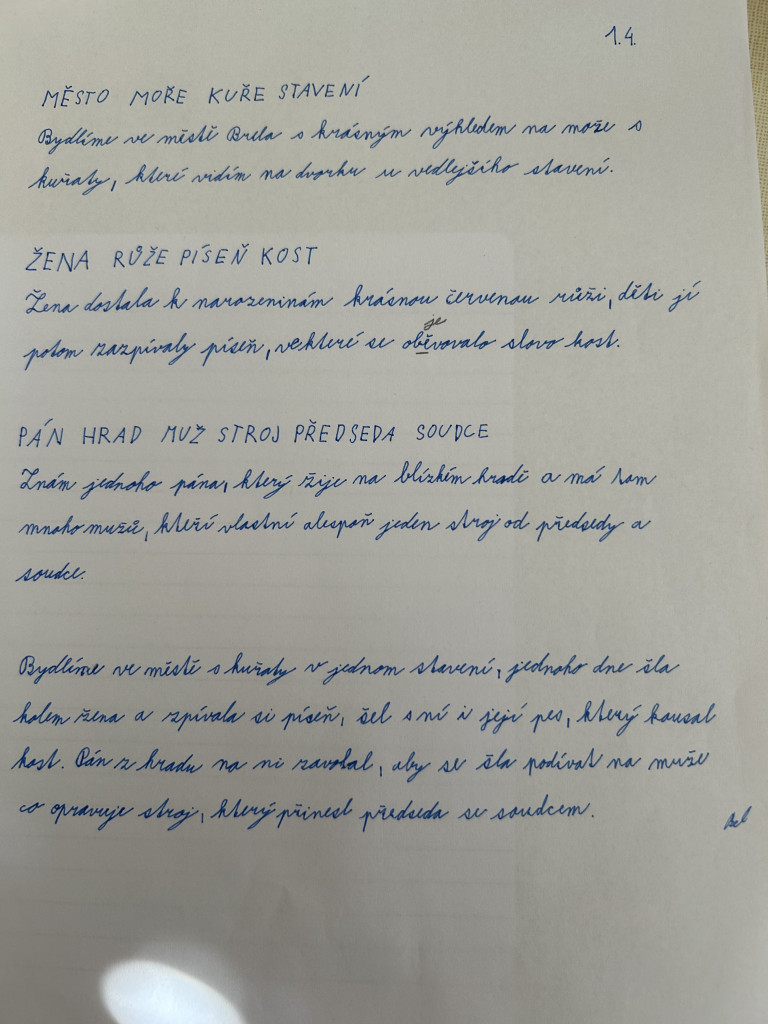 1.4.
MĚSTO MOŘE KUŘE STAVENÍ
Bydlíme ve městě Brela s krásným výhledem na moře s
kuřaty, které vidím na dvorku u vedlejšího stavení.
ŽENA RŮŽE PÍSEŇ KOST
Žena dostala k narozeninám krásnou červenou růži, děti jí
je
potom zazpívaly píseň, vekteré se oběvovalo slovo kost.
PÁN HRAD MUŽ STROJ PŘEDSEDA SOUDCE
Znám jednoho pána, který žije na blízkém hradě a má tam
mnoho mužů, kteří vlastní alespoň jeden stroj od předsedy a
soudce.
Bydlíme ve městě s kuřaty v jednom stavení, jednoho dne šla
kolem žena a zpívala si píseň, šel s ní i její pes, který kousal
kost. Pán z hradu na ni zavolal, aby se šla podívat na muže
co opravuje stroj, který přinesl předseda se soudcem.